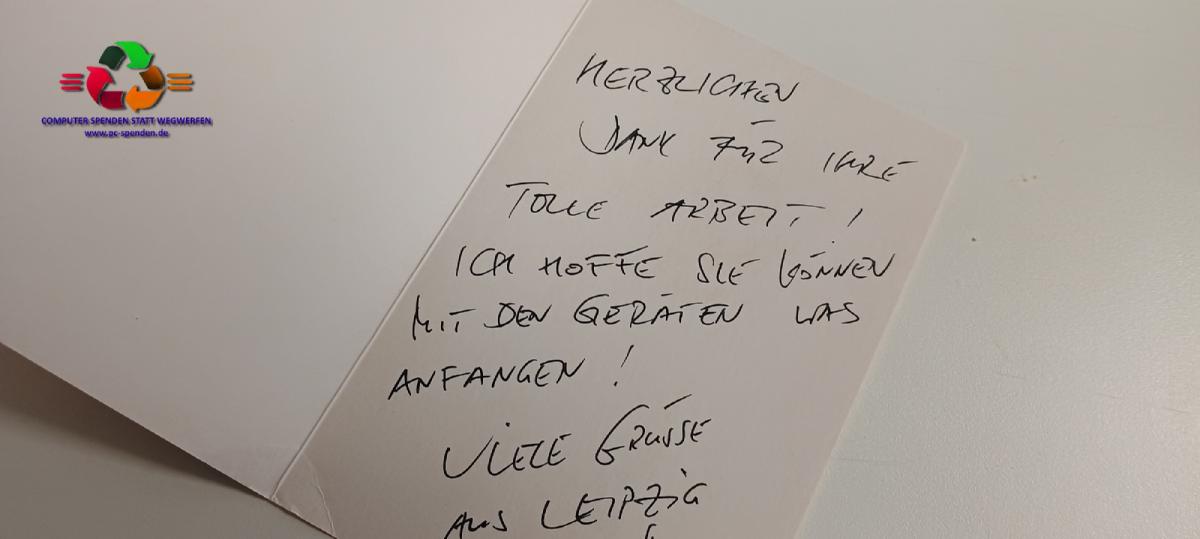 COMPUTER SPENDEN STATT WEGWERFEN
www.pc-spenden.de
HERZLICHEN
DANK FÜR IHRE
TOLLE ARBEIT!
ICH HOFFE SIE KÖNNEN
MIT DEN GERÄTEN WAS
ANFANGEN!
VIELE GRÜSSE
AUS LEIPZIG